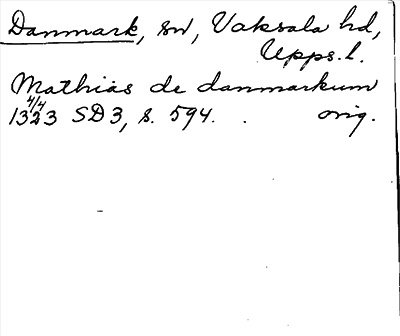 Danmark, sn, Vaksala hd,
Upps. l.
Mathias de danmarkum
4/4
1323 SD 3, s. 594. orig.